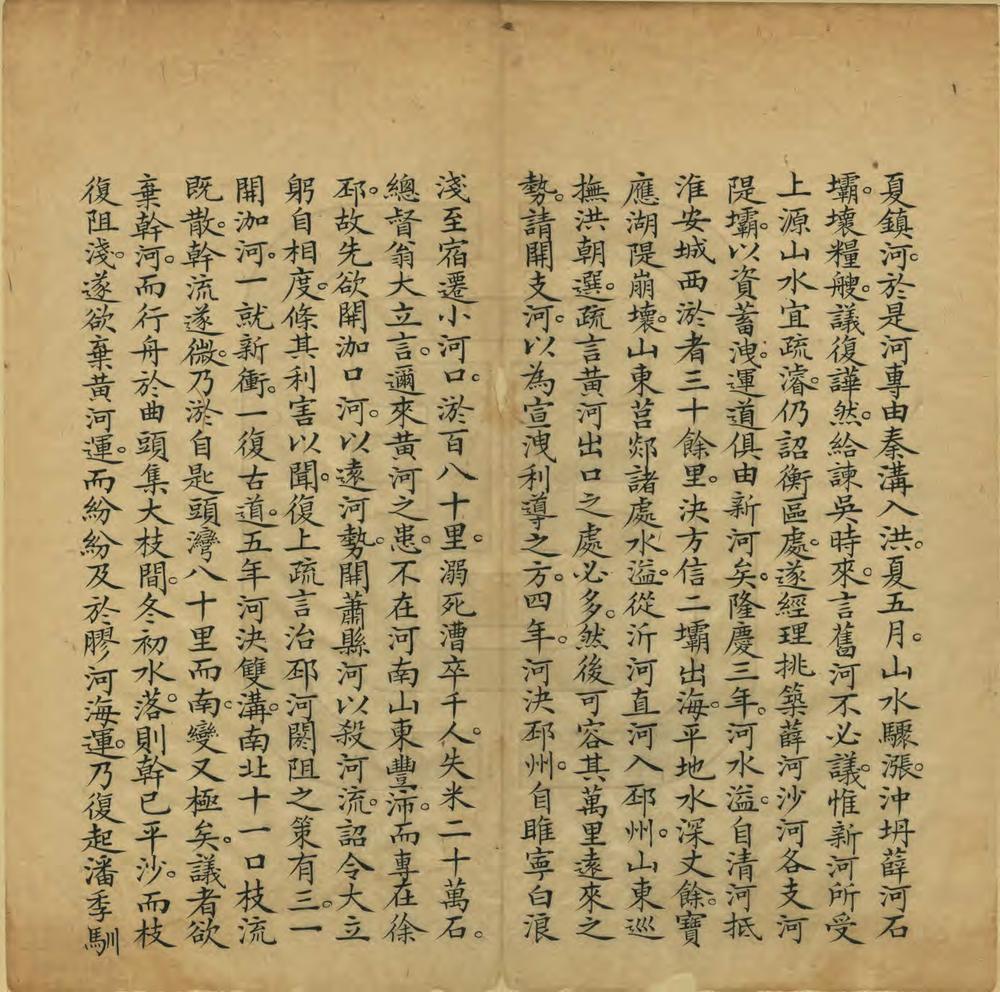 夏鎮河。於是河專由秦溝入洪。夏五月。山水驟漲。沖坍薛河石
壩。壞糧艘。議復譁然。給諫吳時來。言舊河不必議。惟新河所受
上源山水宜疏濬。仍詔衡區處。遂經理挑築薛河沙河各支河
隄壩。以資蓄洩。運道俱由新河矣。隆慶三年。河水溢。自清河抵
淮安城西淤者三十餘里。決方信二壩出海。平地水深丈餘。寶
應湖隄崩壞。山東莒郯諸處水溢。從沂河直河入邳州。山東巡
撫洪朝選。疏言黃河出口之處必多。然後可容其萬里遠來之
勢。請開支河。以為宣洩利導之方。四年。河決邳州。自睢寧白浪
淺至宿遷小河口。淤百八十里。溺死漕卒千人。失米二十萬石。
總督翁大立言。邇來黃河之患。不在河南山東豐沛。而專在徐
邳。故先欲開泇口河。以遠河勢。開蕭縣河以殺河流。詔令大立
躬自相度。條其利害以聞。復上疏言治邳河閼阻之策有三。一
開泇河。一就新衝。一復古道。五年河決雙溝。南北十一口枝流
既散。幹流遂微。乃淤自匙頭灣八十里而南。變又極矣。議者欲
棄幹河。而行舟於曲頭集大枝間。冬初水落。則幹已平沙。而枝
復阻淺。遂欲棄黃河運。而紛紛及於膠河海運。乃復起潘季馴